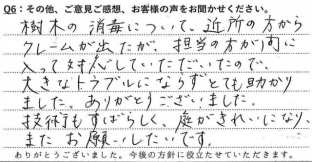 Q6：その他、ご意見ご感想、お客様の声をお聞かせください。
樹木の消毒について、近所の方から
クレームが出たが、担当の方が間に
入って対応していただいたので、
大きなトラブルにならずとても助かり
ました。ありがとうございました。
技術もすばらしく、庭がきれいになり、
またお願いしたいです。
ありがとうございました。今後の方針に役立たせていただきます。